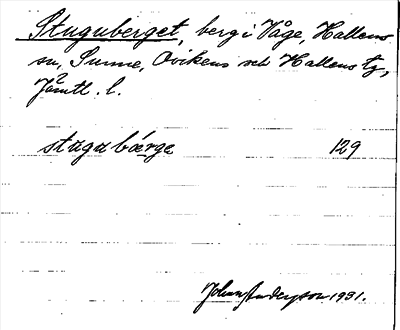 Stuguberget, berg i Våge, Hallens
sn, Sunne, Ovikens och Hallens tg,
Jämtl. l.
stugubærge 129
John Anderson 1931.